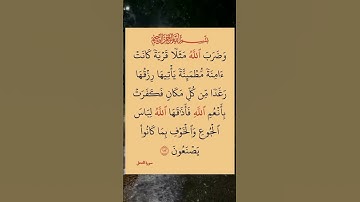 بسم الله الرحمن الرحيم
وَضَرَبَ ٱللَّهُ مَثَلًا قَرْيَةً كَانَتْ
ءَامِنَةً مُّطْمَئِنَّةً يَأْتِيهَا رِزْقُهَا
رَغَدًا مِّن كُلِّ مَكَانٍ فَكَفَرَتْ
بِأَنْعُمِ ٱللَّهِ فَأَذَٰقَهَا ٱللَّهُ لِبَاسَ
ٱلْجُوعِ وَٱلْخَوْفِ بِمَا كَانُوا۟
يَصْنَعُونَ ١١٢
سورة النحل